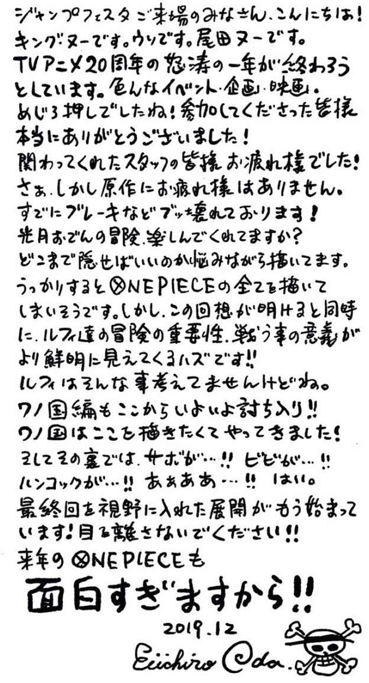 ジャンプフェスタご来場のみなさん、こんにちは!
キングヌーです。ウソです。尾田ヌーです。
TVアニメ20周年の怒涛の一年が終わろう
としています。色んなイベント・企画・映画。
めじろ押しでしたね!参加してくださった皆様
本当にありがとうございました!
関わってくれたスタッフの皆様お疲れ様でした!
さぁ、しかし原作にお疲れ様はありません。
すでにブレーキなどブッ壊れております!
光月おでんの冒険、楽しんでくれてますか?
どこまで隠せばいいのか悩みながら描いてます。
うっかりするとONEPIECEの全てを描いて
しまいそうです。しかし、この回想が明けると同時
に、ルフィ達の冒険の重要性、戦う事の意義が
より鮮明に見えてくるハズです!!
ルフィはそんな事考えてませんけどね。
ワノ国編もここからいよいよ討ち入り!!
ワノ国はここを描きたくてやってきました!
そしてその裏では、サボが…!!ビビが…!!
ハンコックが…!!あぁああ…!!はい。
最終回を視野に入れた展開がもう始まって
います!目を離さないでください!!
来年のONEPIECEも
面白すぎますから!!
2019.12
Eiichiro Oda.